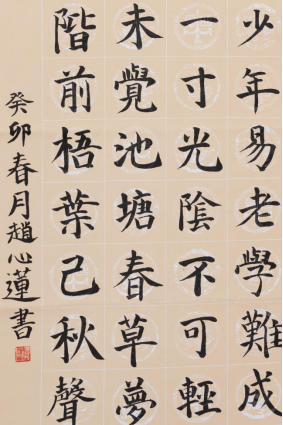 少年易老學難成
一寸光陰不可輕
未覺池塘春草夢
階前梧葉己秋聲
癸卯春月趙心蓮書